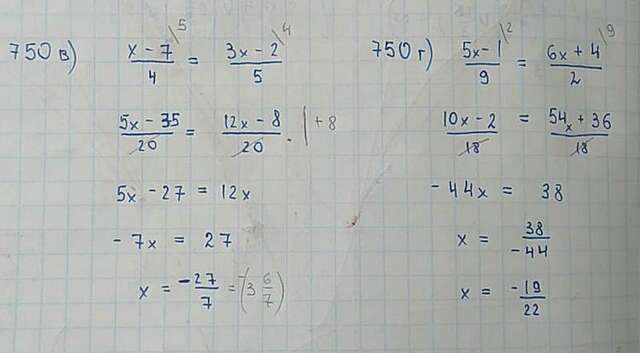 750 в) (x - 7)/4 \5 = (3x - 2)/5 \4
(5x - 35)/20 = (12x - 8)/20 . | + 8
5x - 27 = 12x
- 7x = 27
x = -27/7 = -(3 6/7)
750 г) (5x - 1)/9 \2 = (6x + 4)/2 \9
(10x - 2)/18 = (54x + 36)/18
- 44x = 38
x = 38/-44
x = -19/22